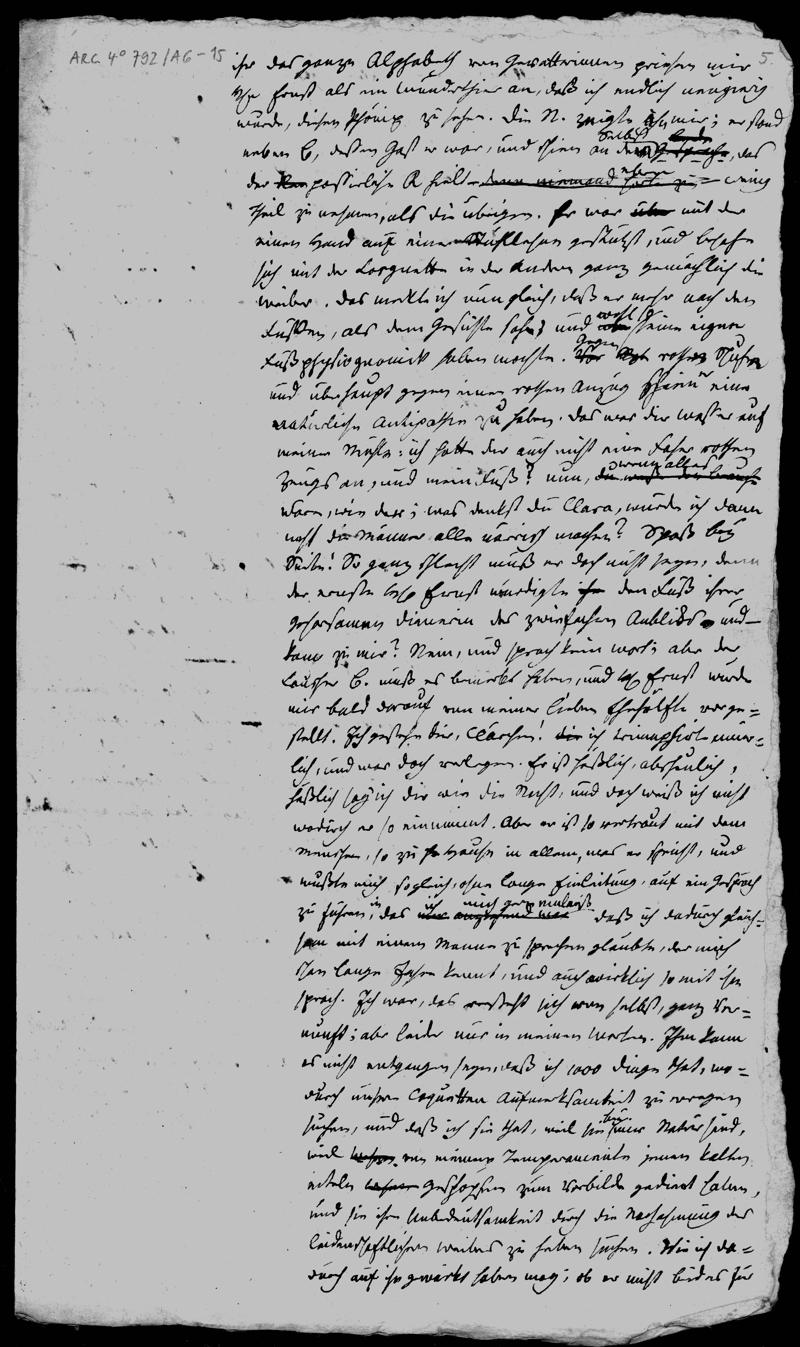 ARC. 4° 792/A6-15
5.
ihr das ganze Alphabeth von Gevatterinnen priesen mir
H. Ernst als ein Wunderthier an, daß ich endlich neugierig
wurde, diesen Phönix zu sehen. Die N. zeigte ihn mir; er stand
neben C, dessen Gast er war, und schien an selbst, das
der possierliche R hielt denn niemand eben wenig
Theil zu nehmen, als die übrigen. Er war über mit der
einen Hand auf eine Stuhllehne gestützt, und besahe
sich mit der Lorgnette in der andern ganz gemächlich die
Weiber. Das merkte ich nun gleich, daß er mehr nach den
Füßen, als dem Gesichte sahe; und wohl seine eigene
Fußphysiognomik haben mochte. Gegen rothe Schuhe
und überhaupt gegen einen rothen Anzug schien er eine
natürliche Antipathie zu haben. Das war dir Wasser auf
meine Mühle: ich hatte dir auch nicht eine Faser rothen
Zeugs an, und mein Fuß? nun, wenn alles
wäre, wie der; was denkst du Clara, würde ich dann
nicht die Männer alle närrisch machen? Spaß bey
Seite! So ganz schlecht muß er doch nicht seyn, denn
der ernste H. Ernst würdigte den Fuß ihrer
gehorsamen Dienerin des zwiefachen Anblicks und
kam zu mir? Nein, und sprach kein Wort; aber der
Lauscher C. muß es bemerkt haben, und H. Ernst wurde
mir bald darauf von meiner lieben Ehehälfte vorge=
stellt. Ich gestehe dir, Clärchen! ich triumphirte inner=
lich, und war doch verlegen. Er ist häßlich, abscheulich,
häßlich sag ich dir wie die Nacht, und doch weiß ich nicht
wodurch er so einnimmt. Aber er ist so vertraut mit dem
Menschen, so zu Hause in allem, was er spricht, und
wußte mich sogleich, ohne lange Einleitung, auf ein Gespräch
zu führen, in das ich mich ganz daß ich dadurch gleich=
sam mit einem Manne zu sprechen glaubte, der mich
schon lange Jahre kennt, und auch wirklich so mit ihm
sprach. Ich war, das versteht sich von selbst, ganz Ver=
nunft; aber leider nur in meinen Worten. Ihm kann
es nicht entgangen seyn, daß ich 1000 Dinge that, wo=
durch unsere Coquetten Aufmerksamkeit zu erregen
suchen, und daß ich sie that, weil sie bei mir Natur sind,
weil von meinem Temperamente jenen kalten
eiteln Geschöpfen zum Vorbilde gedient haben,
und sie ihre Unbedeutsamkeit durch die Nachahmung des
leidenschaftlichen Weibes zu heben suchen. Wie ich da=
durch auf ihn gewirkt haben mag; ob er nicht beides für